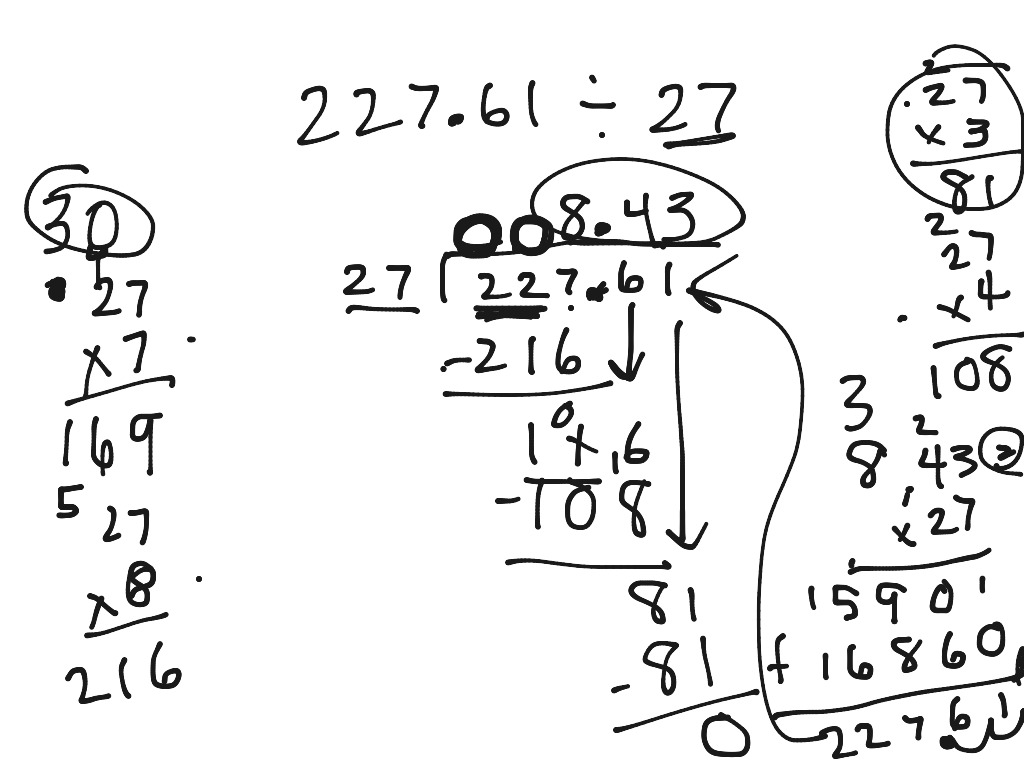 227.61 ÷ 27
30
27
x 7
169
5
27
x 8
216
008.43
27 227.61
-216
1
0
1 1 16
-108
81
-81
0
2
27
x 3
81
2
27
x 4
108
3
2
8 43 2
x 27
1
15901
+ 16860
227.61